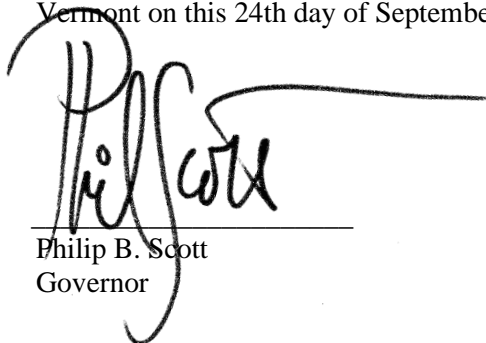 Vermont on this 24th day of Septembe
Phil Scott
Philip B. Scott
Governor